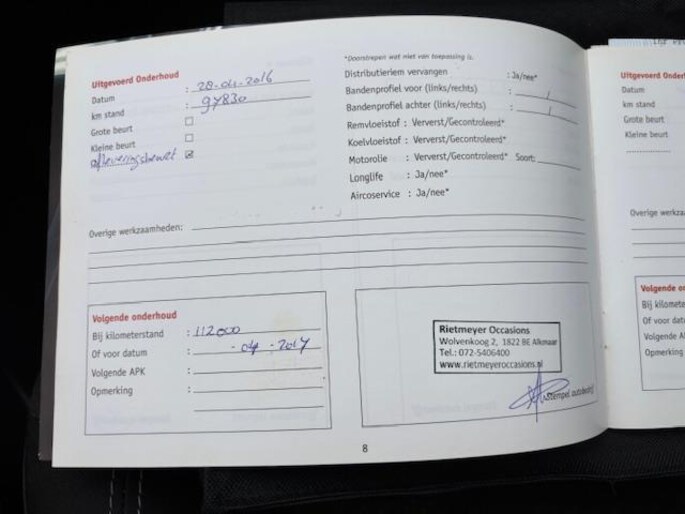 Uitgevoerd Onderhoud
Datum : 28-04-2016
km stand : 97830
Grote beurt
Kleine beurt
afleveringsbeurt
*Doorstrepen wat niet van toepassing is.
Distributieriem vervangen : Ja/nee*
Bandenprofiel voor (links/rechts) : /
Bandenprofiel achter (links/rechts) : /
Remvloeistof : Ververst/Gecontroleerd*
Koelvloeistof : Ververst/Gecontroleerd*
Motorolie : Ververst/Gecontroleerd* Soort:
Longlife : Ja/nee*
Aircoservice : Ja/nee*
Overige werkzaamheden:
Volgende onderhoud
Bij kilometerstand : 112000
Of voor datum : -04-2017
Volgende APK :
Opmerking :
Rietmeyer Occasions
Wolvenkoog 2, 1822 BE Alkmaar
Tel.: 072-5406400
www.rietmeyeroccasions.nl
Stempel autobedrijf
8
Uitgevoerd
Datum
km stand
Grote beurt
Kleine beurt
Overige werkz
Volgende on
Bij kilometer
Of voor datu
Volgende A
Opmerking